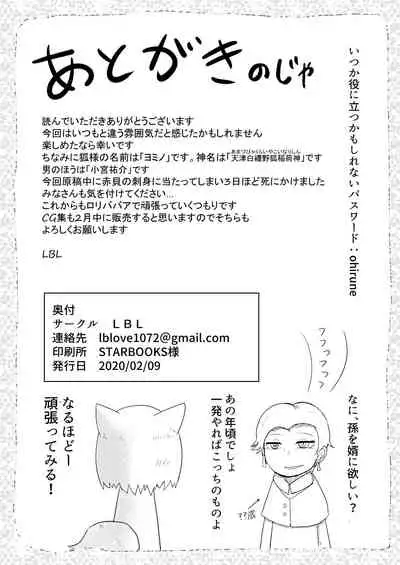 あとがきのじゃ
いつか役に立つかもしれないパスワード：ohirune
読んでいただきありがとうございます
今回はいつもと違う雰囲気だと感じたかもしれません
楽しめたなら幸いです
ちなみに狐様の名前は「ヨミノ」です。神名は「天津白禳野狐稲荷神」です
男のほうは「小宮祐介」です
今回原稿中に赤貝の刺身に当たってしまい3日ほど死にかけました
みなさんも気を付けてください…
これからもロリババアで頑張っていくつもりです
CG集も2月中に販売すると思いますのでそちらも
よろしくお願いします
LBL
奥付
サークル　ＬＢＬ
連絡先　lblove1072@gmail.com
印刷所　STARBOOKS様
発行日　2020/02/09
フフっフフっ？
なに、孫を婿に欲しい？
あの年頃でしょ
一発やればこっちのものよ
なるほどー
頑張ってみる！